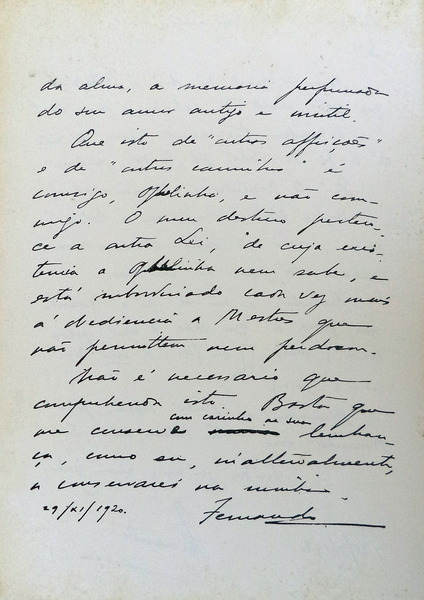 da alma, a memoria perfumada
do seu amor antigo e inutil.
Que isto de "outras affeições"
e de "outros caminhos" é
consigo, Ophelinha, e não com-
migo. O meu destino perten-
ce a outra Lei, de cuja exis-
tencia a Ophelinha nem sabe, e
está subordinado cada vez mais
á obediencia a Mestres que
não permittem nem perdoam.
Não é necessario que
comprehenda isto. Basta que
me conserve com carinho na sua lembran-
ça, como eu, inalteravelmente,
a conservarei na minha.
29/XI/1920.
Fernando